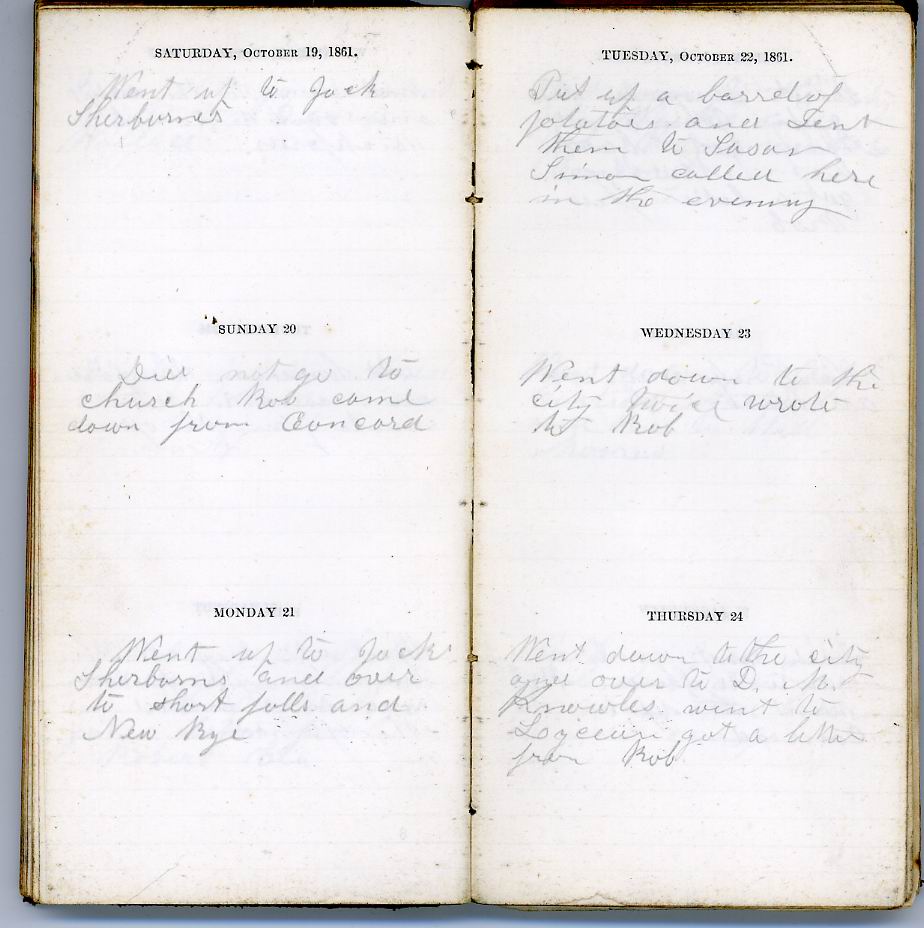 SATURDAY, OCTOBER 19, 1861.
Went up to Jack
Sherburnes
SUNDAY 20
Did not go to
church Rob come
down from Concord
MONDAY 21
Went up to Jack
Sherburns and over
to short falls and
New Rye
TUESDAY, OCTOBER 22, 1861.
Put up a barrel of
potatoes and Sent
them to Susan
Simon called here
in the evening
WEDNESDAY 23
Went down to the
city twice wrote
to Rob
THURSDAY 24
Went down to the city
and over to D. M.
Knowles went to
Lyceum got a letter
from Rob